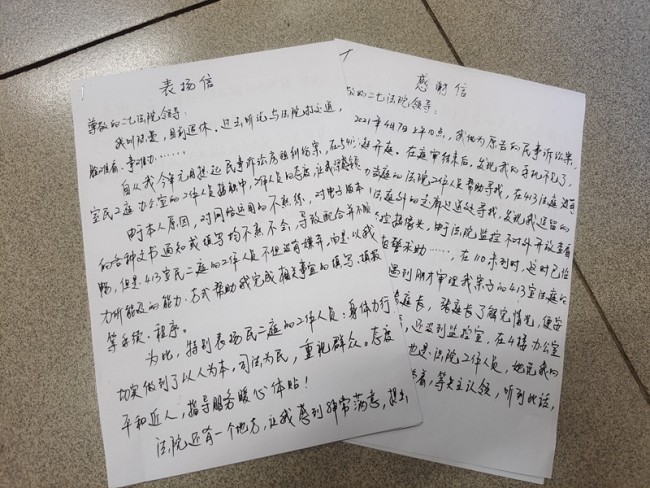 表扬信
尊敬的二七法院领导：
我叫 ，目前退休。过去听说与法院打交道，
脸难看、事难办……。
自从我今年元月提起民事诉讼房租纠纷案，在与413
室民二庭办公室的工作人员接触中，工作人员的态度，让我
由于本人原因，对网络运用的不熟练，对电子版本
的各种文书通知或填写均不熟不会，导致配合并不顺
畅，但是413室民二庭的工作人员不但没有嫌弃，而是以我
力所能及的能力、方式帮助我完成相关事宜的填写、填报
等手续、程序。
为此，特别表扬民二庭的工作人员：身体力行
切实做到了以人为本，司法为民，重视群众。态度
平和近人，指导服务暖心体贴！
法院还有一个地方，让我感到非常满意，提出
感谢信
敬的二七法院领导：
2021年4月7日上午10点，我作为原告的民事诉讼案，
庭开庭。在庭审结束后，发现我的手机不见了，
的法院工作人员帮助寻找，在413法庭没有
法庭外的走廊过道处寻找，发现我遗留的
控摄像头，由于法院监控不对外开放查看
报警求助……，在110来到时，这时已
遇到刚才审理我案子的413室法庭
张庭长，张庭长了解完情况，便
，还没到监控室，在4楼办公室
也是法院工作人员，她说我的
着，等失主认领，听到此话，